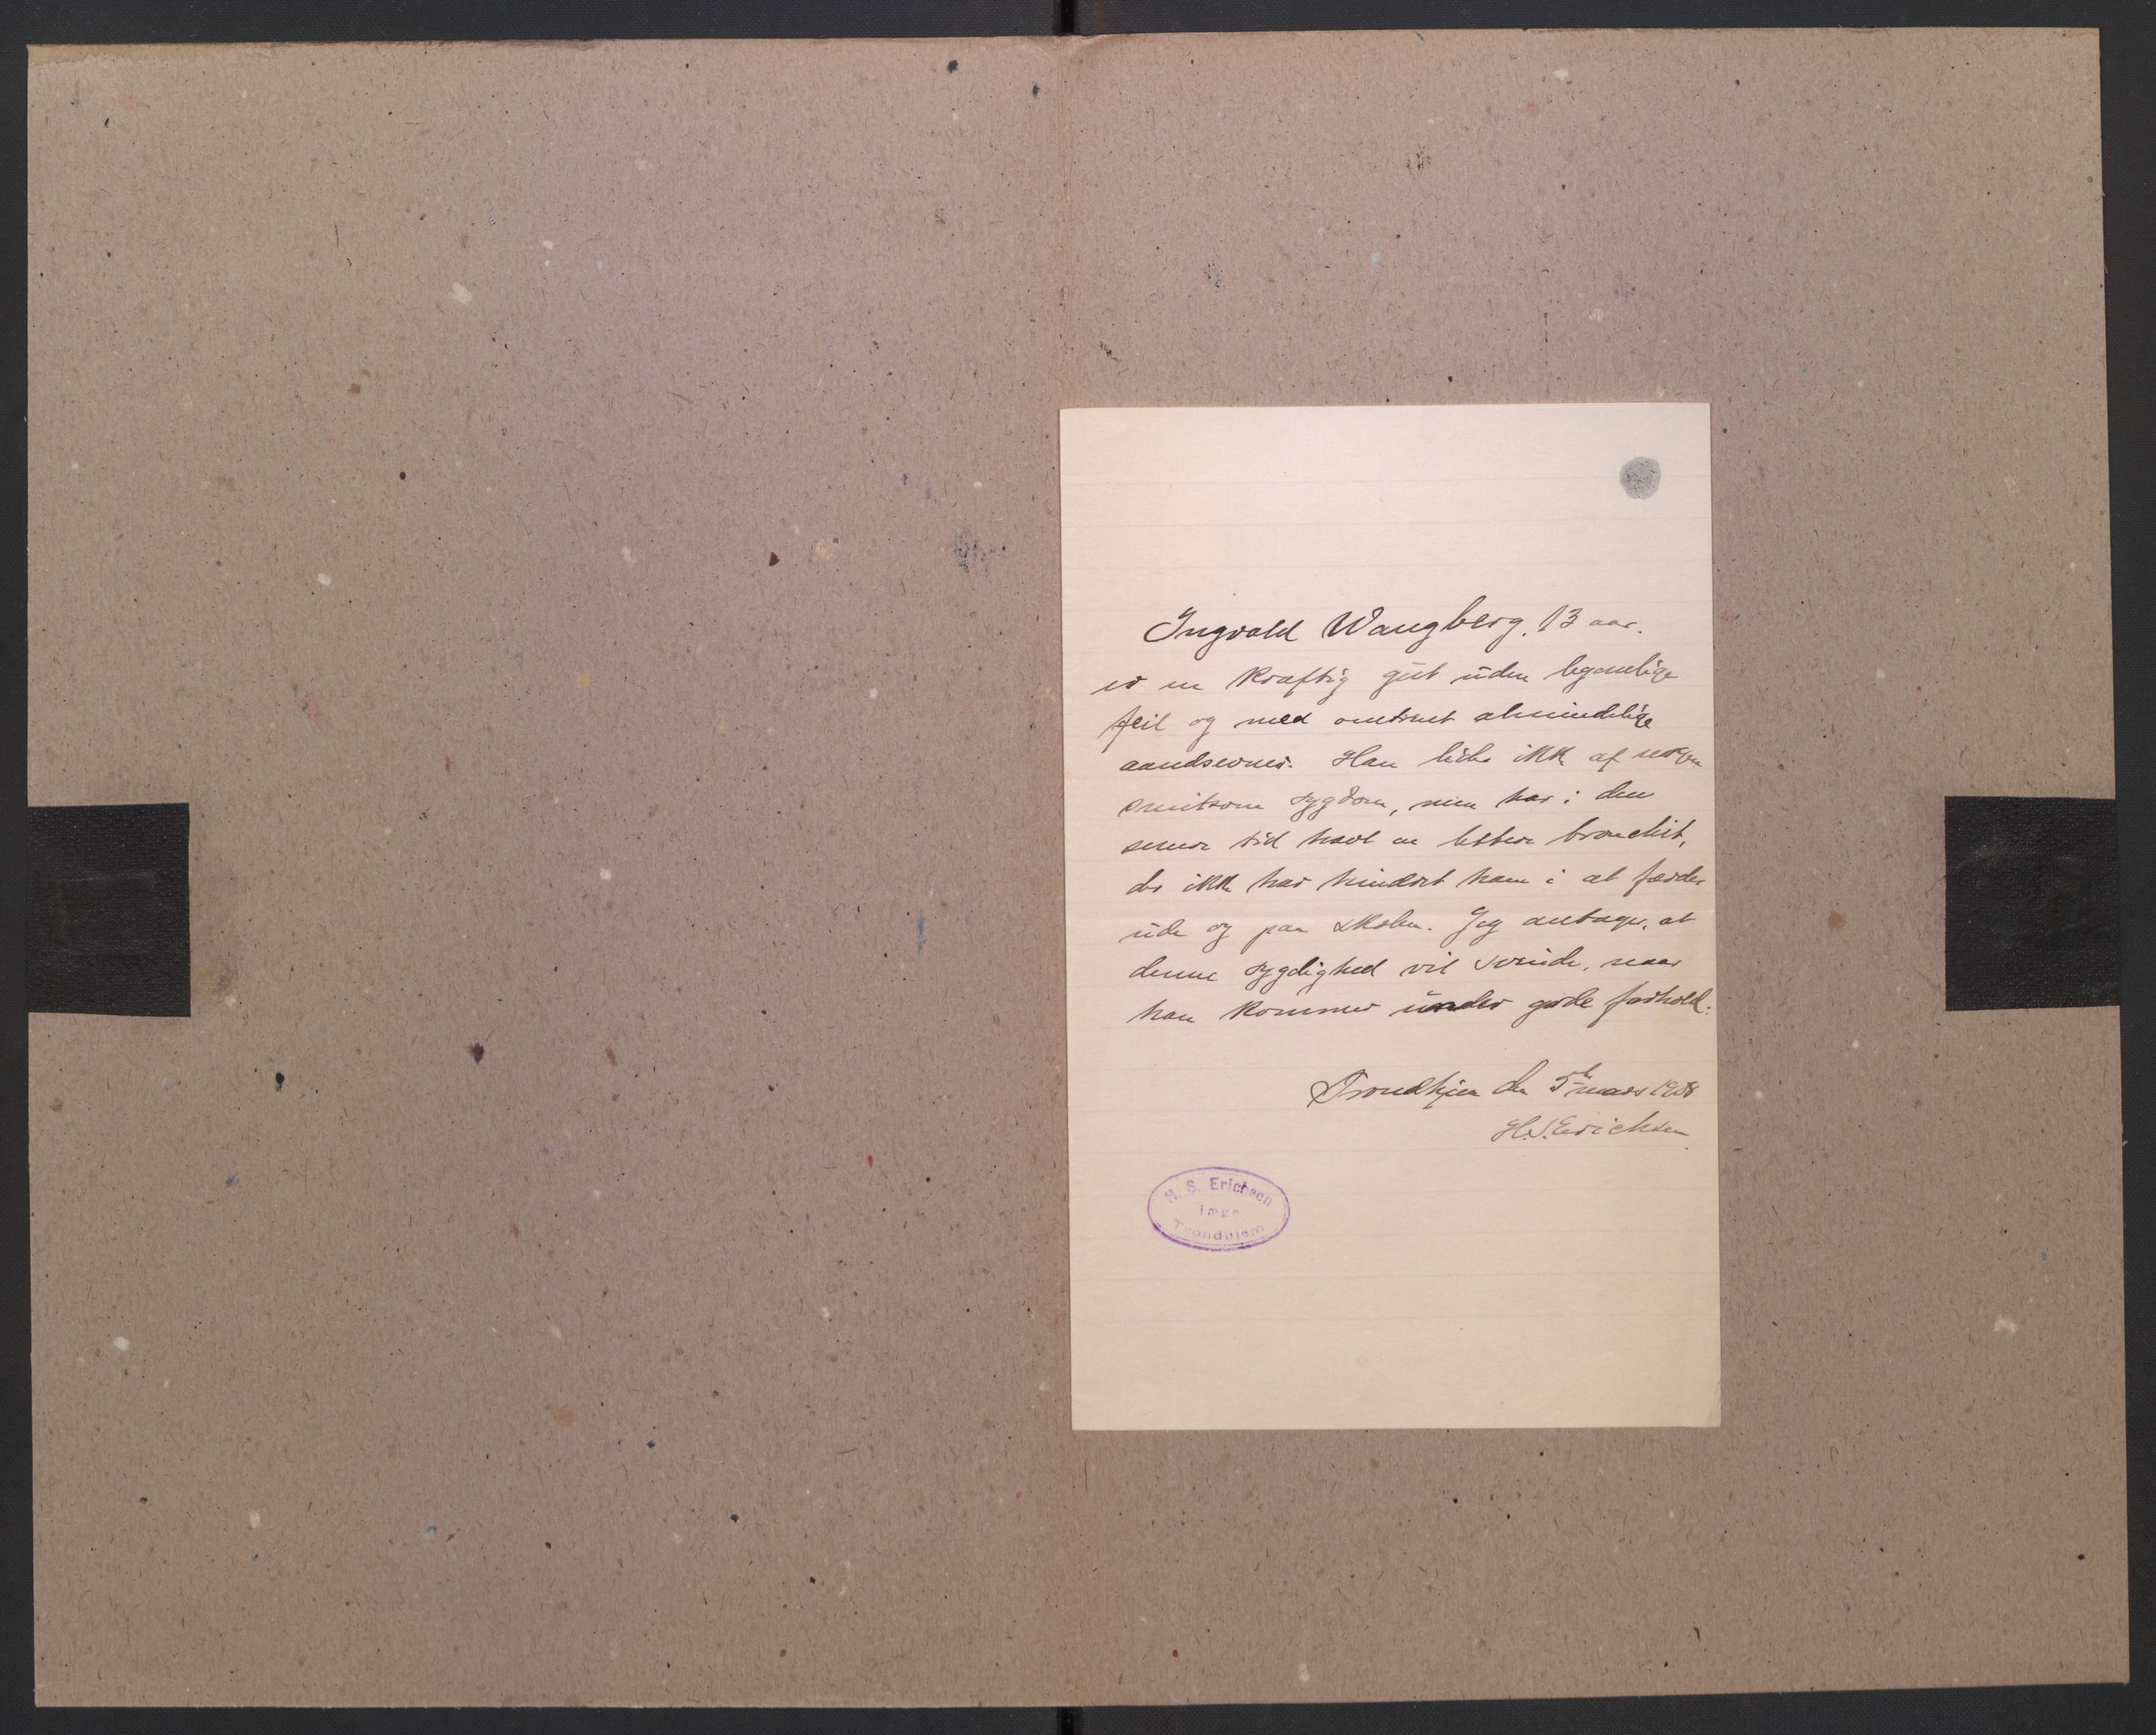 Ingvald Wangberg. 13 aar.
er en kraftig gut uden legemlige
feil og med omtrent almindelige
aandsevner. Han lider ikke af nogen
smitsom sygdom, men har i den
senere tid havt en lettere bronchit,
der ikke har hindret ham i at færdes
ude og paa skolen. Jeg antager, at
denne sygelighed vil svinde, naar
han kommer under gode forhold.
Trondhjem den 5te mars 1908
H. S. Erichsen
H. S. Erichsen
læge
Trondhjem